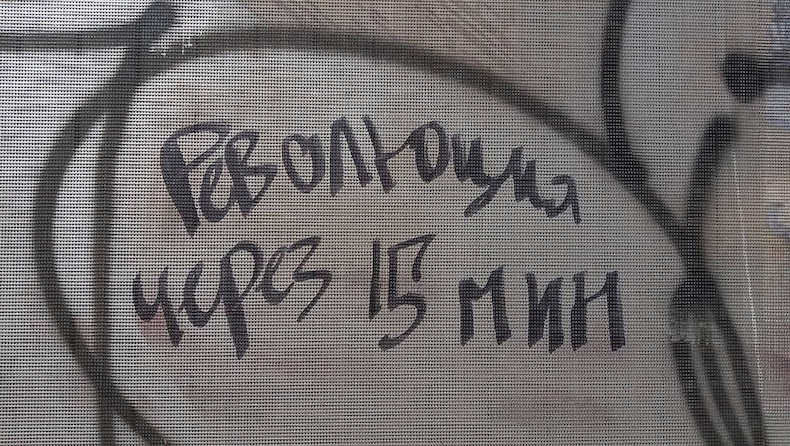 Революция
через 15 мин